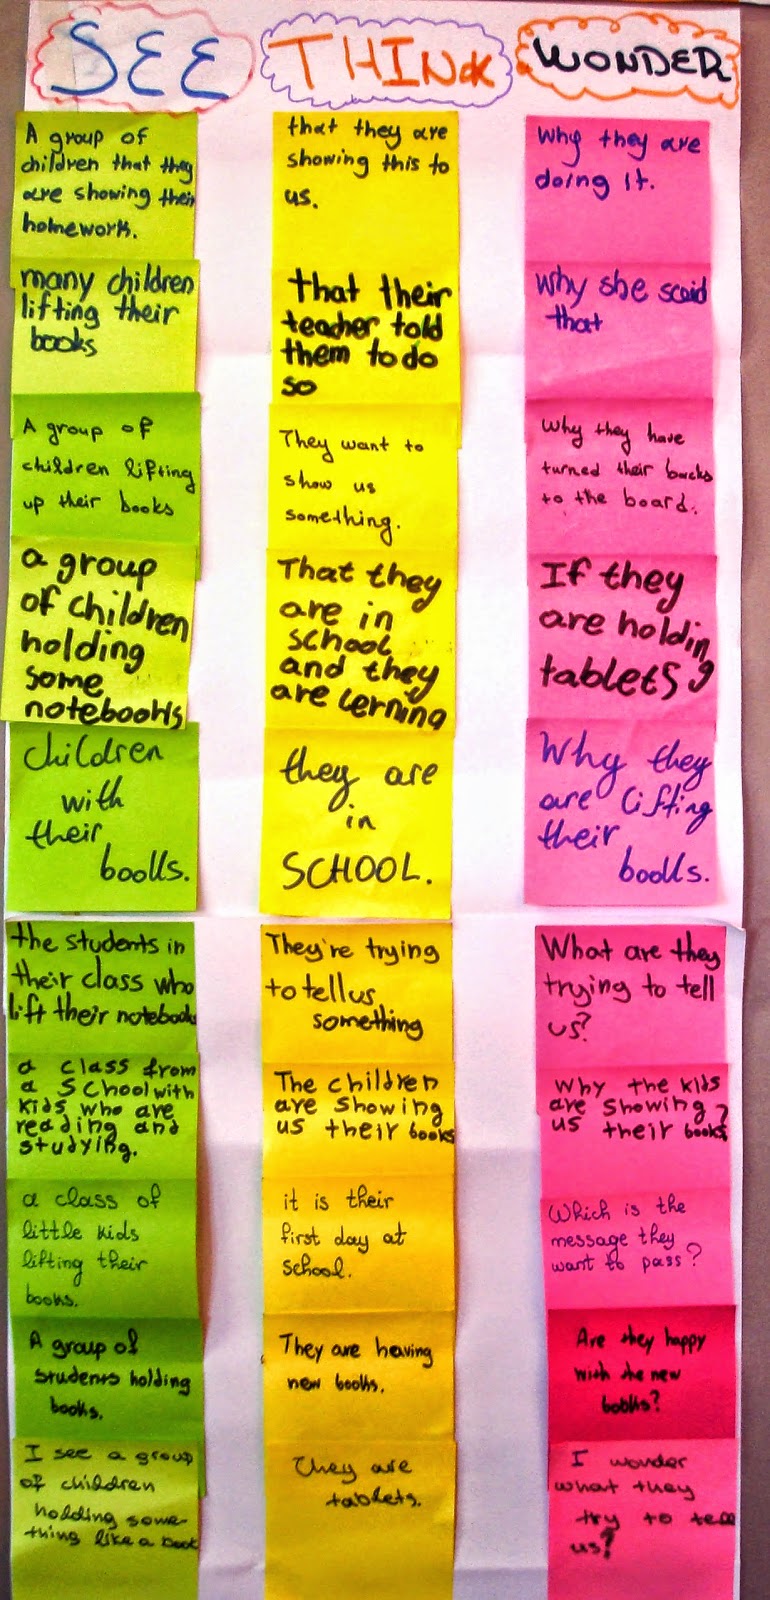 SEE
A group of
children that they
are showing their
homework.
many children
lifting their
books
A group of
children lifting
up their books
a group
of children
holding
some
notebooks
children
with
their
books.
the students in
their class who
lift their notebooks
a class from
a school with
kids who are
reading and
studying.
a class of
little kids
lifting their
books.
A group of
students holding
books.
I see a group
of children
holding some-
thing like a book
THINK
that they are
showing this to
us.
that their
teacher told
them to do
so
They want to
show us
something.
That they
are in
school
and they
are lerning
they are
in
SCHOOL.
They're trying
to tell us
something
The children
are showing
us their books
it is their
first day at
school.
They are having
new books.
They are
tablets.
WONDER
Why they are
doing it.
Why she said
that
Why they have
turned their backs
to the board.
If they
are holding
tablets?
Why they
are lifting
their
books.
What are they
trying to tell
us?
Why the kids
are showing
us their books?
Which is the
message they
want to pass?
Are they happy
with the new
books?
I wonder
what they
try to tell
us?